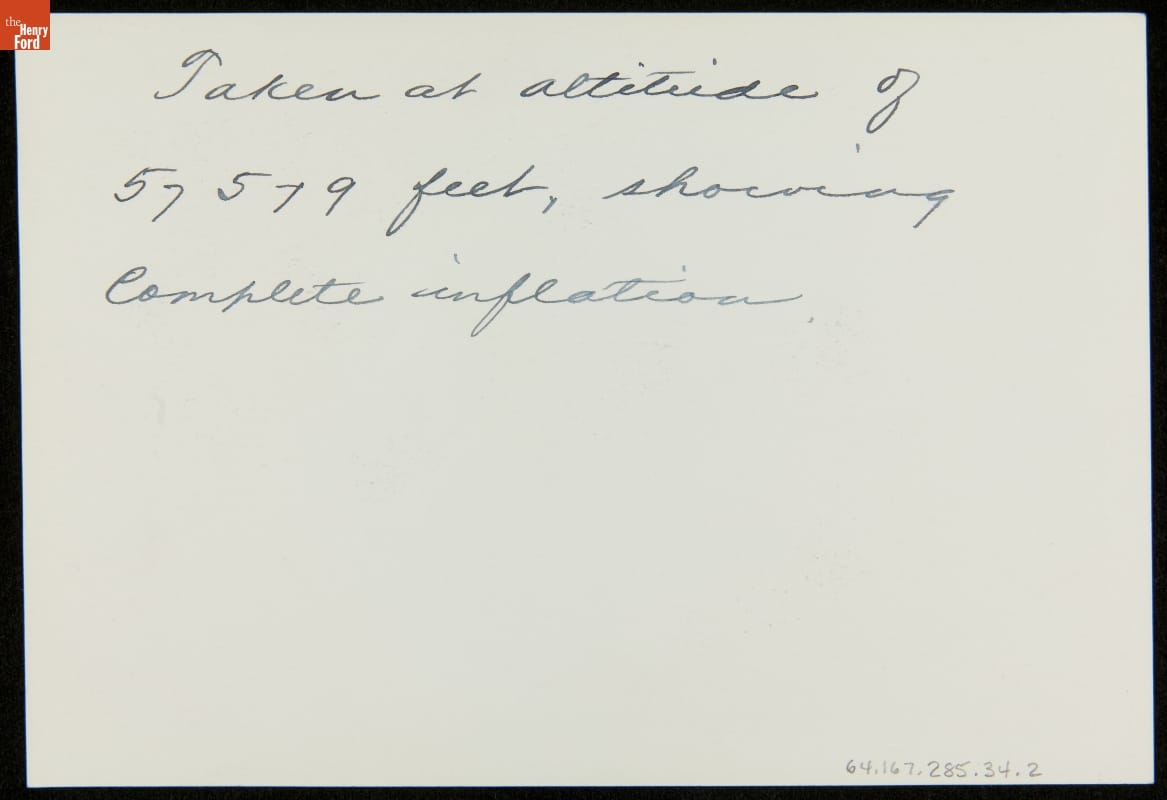 the
Henry
Ford
Taken at altitude of
57579 feet, showing
Complete inflation.
64.167.285.34.2